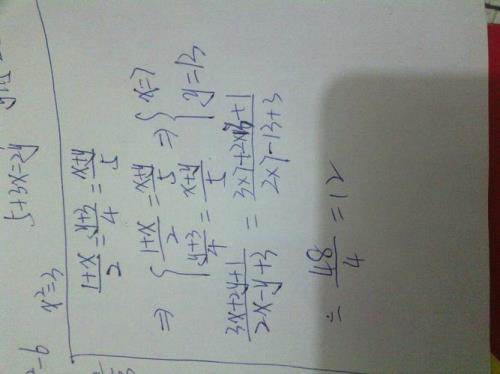 5+3x=2y
x²=3
\frac{1+x}{2}=\frac{y+3}{4}=\frac{x+y}{5}
⇒ { \frac{1+x}{2}=\frac{x+y}{5} ⇒ { x=7
\frac{y+3}{4}=\frac{x+y}{5} y=13
\frac{3x+2y+1}{2x-y+3} = \frac{3×7+2×13+1}{2×7-13+3}
= \frac{48}{4} =12